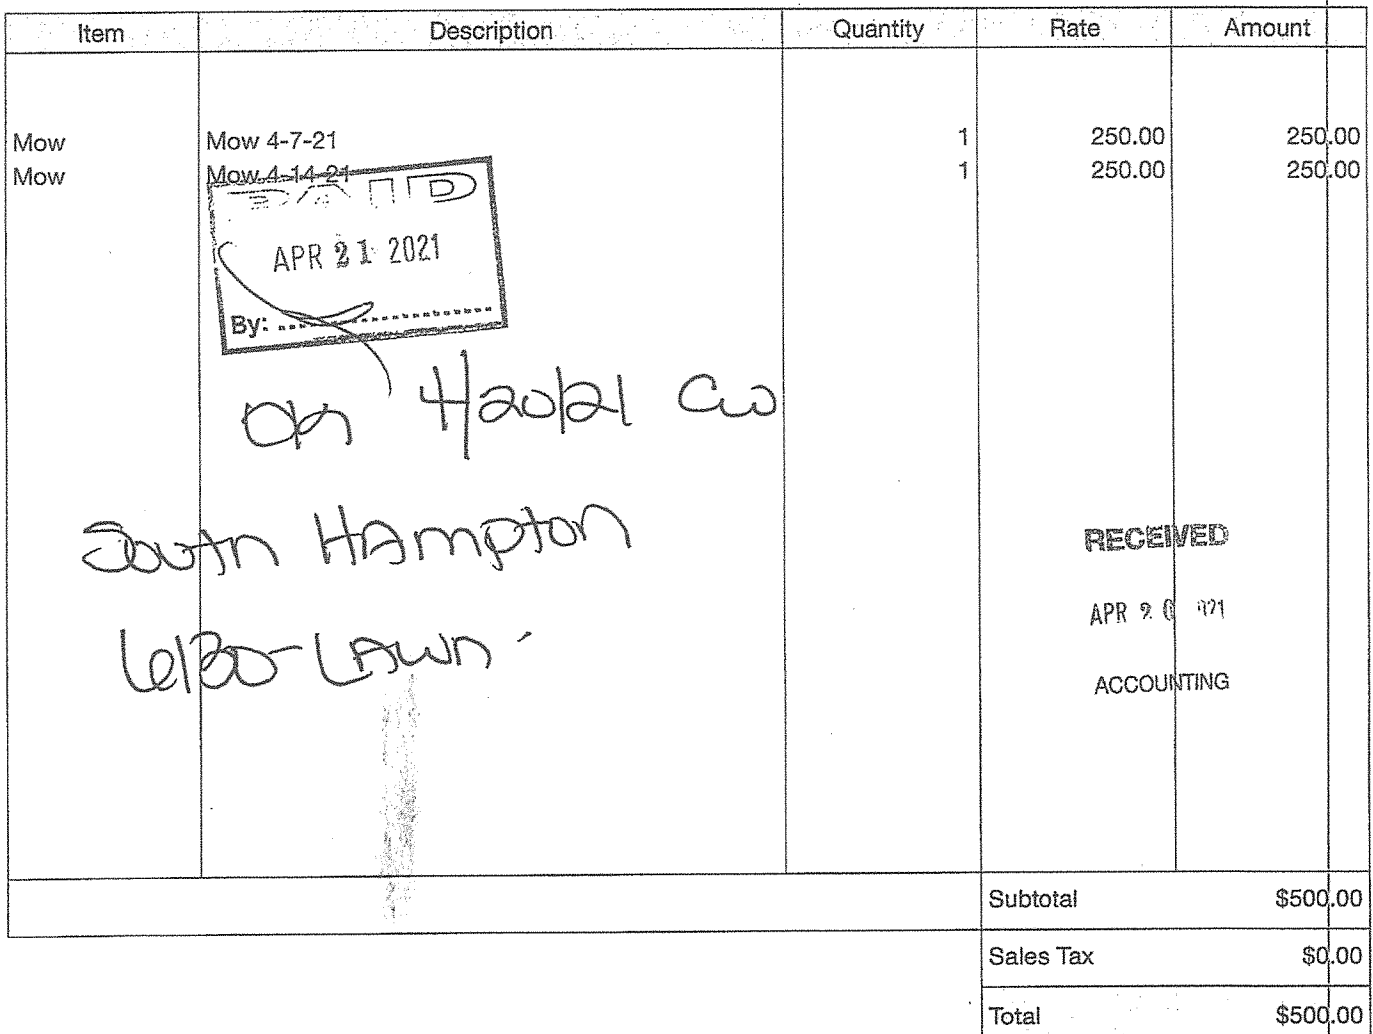 Item Description Quantity Rate Amount
Mow Mow 4-7-21 1 250.00 250.00
Mow Mow 4-14-21 1 250.00 250.00
PAID
APR 21 2021
By:
4/20/21 CW
South Hampton
6130-LAWN
RECEIVED
APR 20 021
ACCOUNTING
Subtotal $500.00
Sales Tax $0.00
Total $500.00